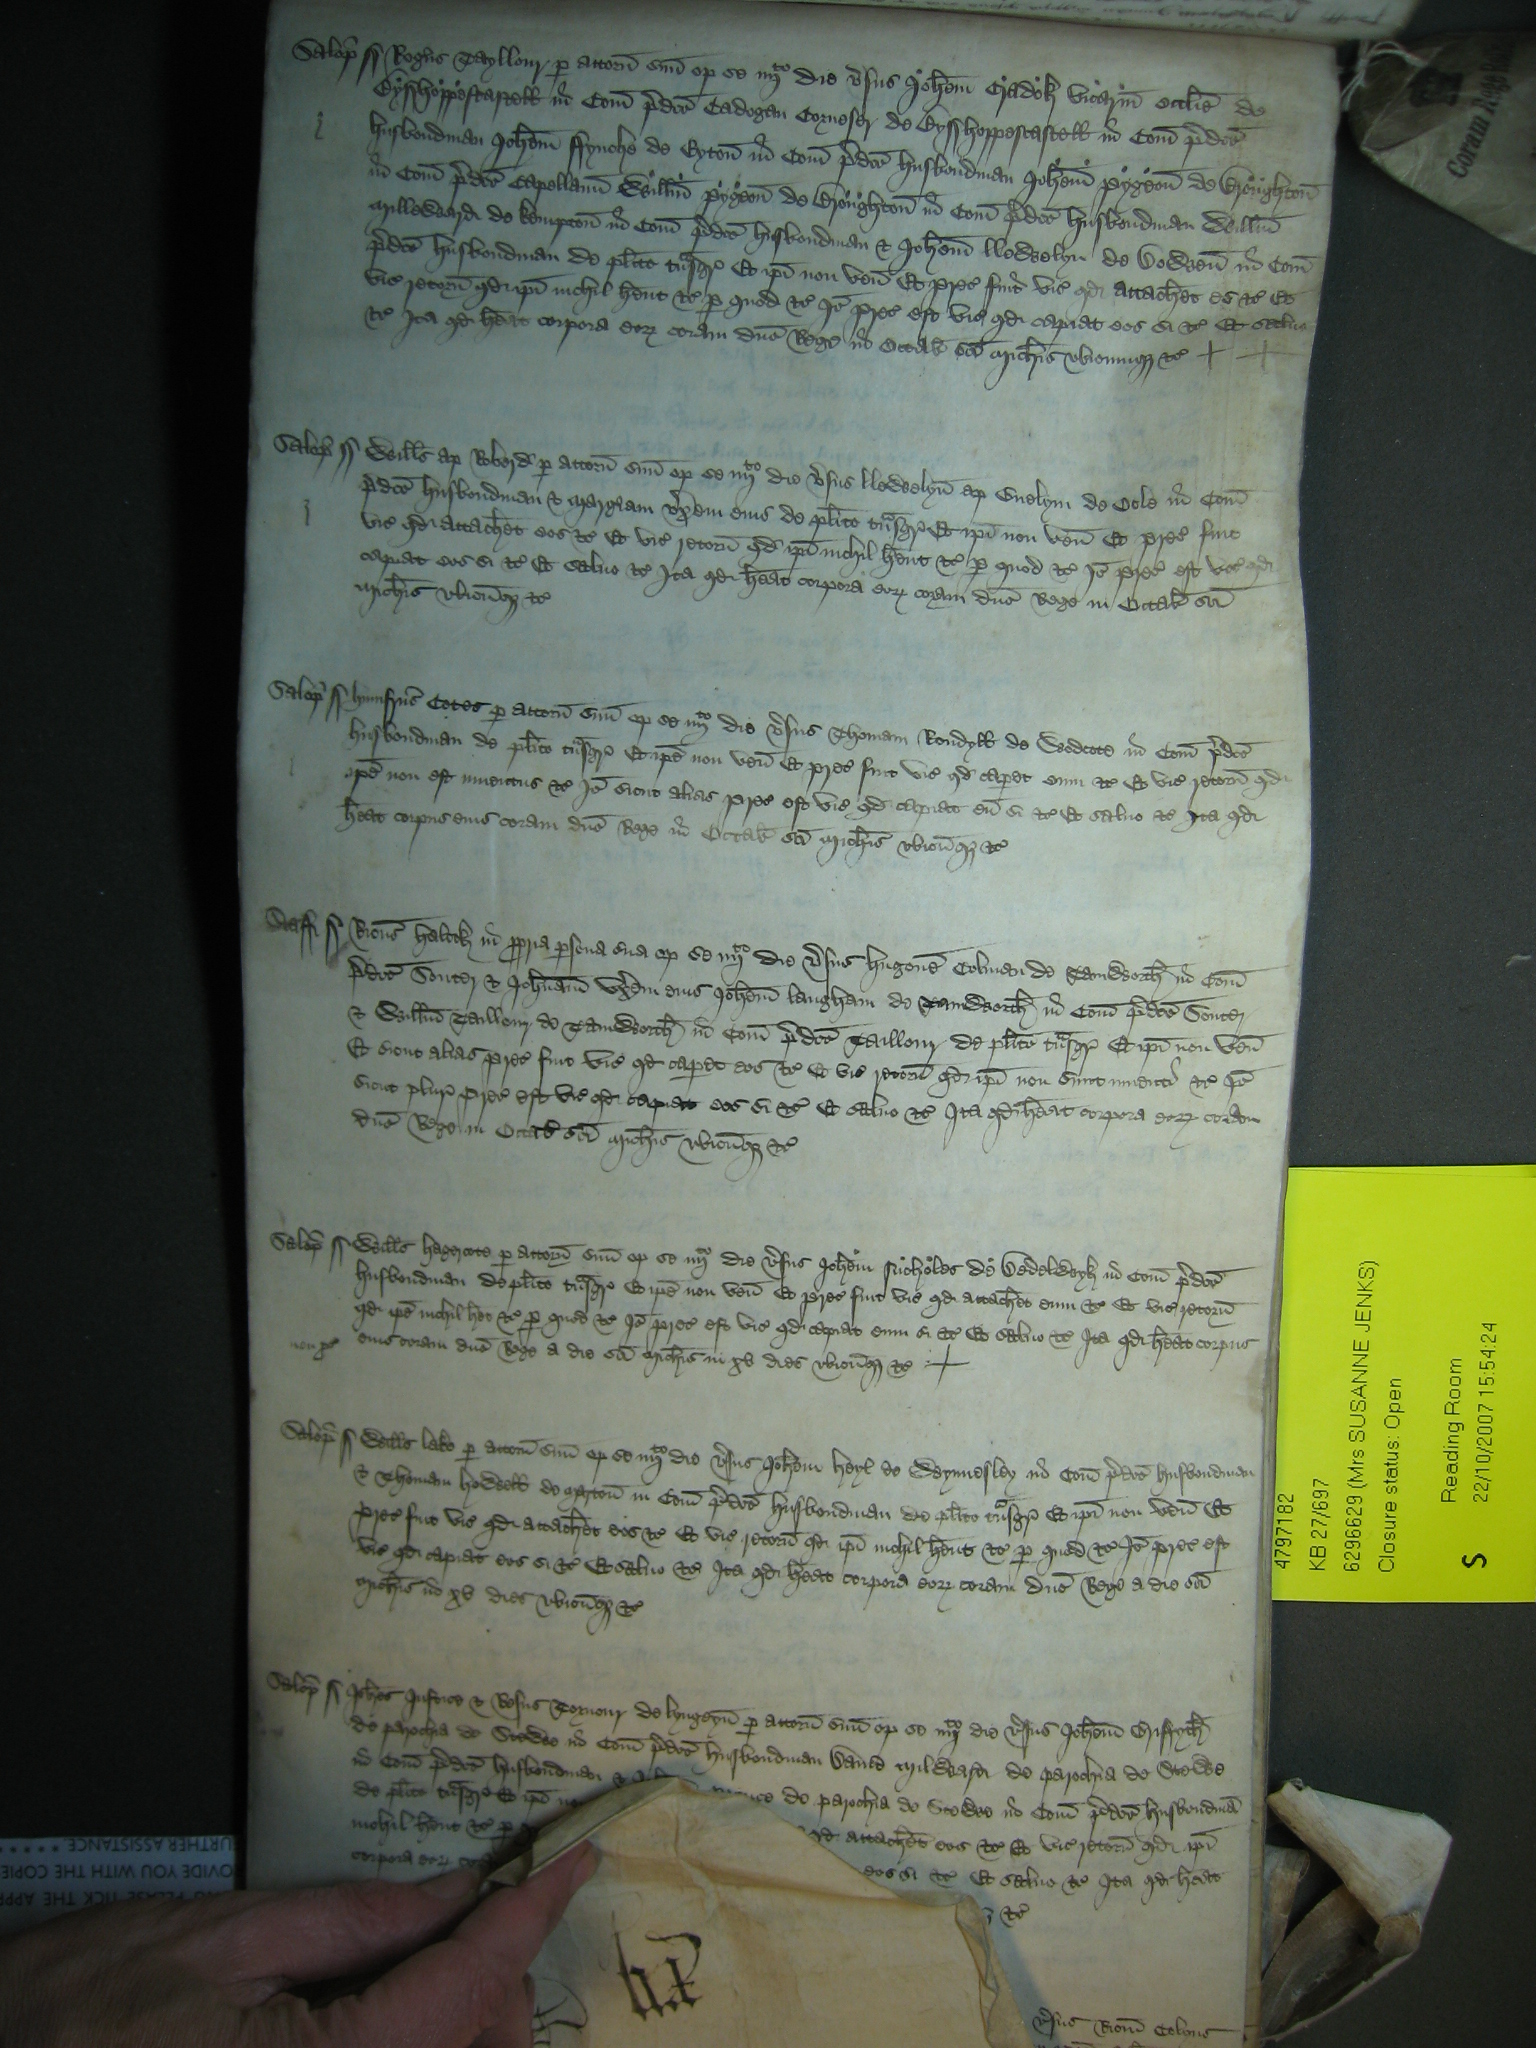 Salop ss Rog̃us Tayllour p attorñ suũ op se iiijto die v̾sus Joh̃em Cradok vicariũ eccl̃ie de
Bysshoppescastell in Com̃ p̃dc̃o Cadogan Corveser de Bysshoppescastell in Com̃ p̃dc̃o
husbondman Joh̃em ffynche de Eyton̄ in Com̃ p̃dc̃o husbondman Joh̃em Pygeon̄ de Broughton̄
in Com̃ p̃dc̃o Capellanũ Will̃m Pygeon̄ de Broughton̄ in Com̃ p̃dc̃o husbondman Will̃m
Milleward de Kempton̄ in Com̃ p̃dc̃o husbondman & Joh̃em llewelyn de in Com̃
p̃dc̃o husbondman de pl̃ito tr̃nsgr̃ Et ip̃i non ven̄ Et prec̃ fuit vic̃ qd̃ attach̃et eos &c̃ Et
vic̃ retorñ qd̃ ip̃i nichil h̃ent &c̃ p quod &c̃ Jõ prec̃ est vic̃ qd̃ capiat eos si &c̃ Et salvo
&c̃ Ita qd̃ h̃eat corpora eoꝝ coram dñо Rege in Octab̃ sc̃i Mich̃is vbicumqꝫ &c̃
Salop ss Will̃s ap Roberd p attorñ suũ op se iiijto die v̾sus llewelyn ap Guelym de Cole in Com̃
p̃dc̃o husbondman & Margiam vx̃em eius de pl̃ito tr̃nsgr̃ Et ip̃i non ven̄ Et prec̃ fuit
vic̃ qd̃ attach̃et eos &c̃ Et vic̃ retorñ qd̃ ip̃i nichil h̃ent &c̃ p quod &c̃ Jõ prec̃ est vic̃ qd̃
capiat eos si &c̃ Et salvo &c̃ Ita qd̃ h̃eat corpora eoꝝ coram dñо Rege in Octab̃ sc̃i
Mich̃is vbicũqꝫ &c̃
Salop ss humfrus Cotes p attorñ suũ op se iiijto die v̾sus Thomam Rondyll de Wodcote in Com̃ p̃dc̃o
husbondman de pl̃ito tr̃nsgr̃ Et ip̃e non ven̄ Et prec̃ fuit vic̃ qd̃ cap̃et eum &c̃ Et vic̃ retorñ qd̃
ip̃e non est inventus &c̃ Jõ sicut alias prec̃ est vic̃ qd̃ capiat eũ si &c̃ Et salvo &c̃ Ita qd̃
h̃eat corpus eius coram dñо Rege in Octab̃ sc̃i Mich̃is vbicũqꝫ &c̃
Staff ss Ric̃us halek in p̃pria p̃sona sua op se iiijto die v̾sus hugonẽ Colman de Tamworth in Com̃
p̃dc̃o Souter & Joh̃nam vx̃em eius Joh̃em langham de Tamworth in Com̃ p̃dc̃o Souter
& Will̃m Tailleur de Tamworth in Com̃ p̃dc̃o Tailleur de pl̃ito tr̃nsgr̃ Et ip̃i non ven̄
Et sicut alias prec̃ fuit vic̃ qd̃ cap̃et eos &c̃ Et vic̃ retorñ qd̃ ip̃i non sunt inventi &c̃ Jõ
sicut plur̃ prec̃ est vic̃ qd̃ capiat eos si &c̃ Et salvo &c̃ Ita qd̃ h̃eat corpora eoꝝ coram
dñо Rege in Octab̃ sc̃i Mich̃is vbicũqꝫ &c̃
Salop ss Will̃s hagercote p attorñ suũ op se iiijto die v̾sus Joh̃em Nicholes de in Com̃ p̃dc̃o
husbondman de pl̃ito tr̃nsgr̃ Et ip̃e non ven̄ Et prec̃ fuit vic̃ qd̃ attach̃et eum &c̃ Et vic̃ retorñ
qd̃ ip̃e nichil h̃et &c̃ p quod &c̃ Jõ prec̃ est vic̃ qd̃ capiat eum si &c̃ Et salvo &c̃ Ita qd̃ h̃eat corpus
eius coram dñо Rege a die sc̃i Mich̃is in xv dies vbicũqꝫ &c̃
Salop ss Will̃s lake p attorñ suũ op se iiijto die v̾sus Joh̃em heyl de Weymesley in Com̃ p̃dc̃o husbondman
& Thomam howell de in Com̃ p̃dc̃o husbondman de pl̃ito tr̃nsgr̃ Et ip̃i non ven̄ Et
prec̃ fuit vic̃ qd̃ attach̃et eos &c̃ Et vic̃ retorñ qd̃ ip̃i nichil h̃ent &c̃ p quod &c̃ Jõ prec̃ est
vic̃ qd̃ capiat eos si &c̃ Et salvo &c̃ Ita qd̃ h̃eat corpora eoꝝ coram dñо Rege a die sc̃i
Mich̃is in xv dies vbicũqꝫ &c̃
Salop ss Joh̃es Justice & Tornour de lyngeyn̄ p attorñ suũ op se iiijto die v̾sus Joh̃em Griffyth
de parochia de Stowe in Com̃ p̃dc̃o husbondman David Milward de parochia de Stowe
in Com̃ p̃dc̃o husbondman & de parochia de Stowe in Com̃ p̃dc̃o husbondmã
de pl̃ito tr̃nsgr̃ Et ip̃i qd̃ attach̃et eos &c̃ Et vic̃ retorñ qd̃ ip̃i
nichil h̃ent &c̃ p eos si &c̃ Et salvo &c̃ Ita qd̃ h̃eat
corpora eoꝝ &c̃
v̾sus Ric̃m
Coram Rege
4797182
KB 27/697
6296629 (Mrs SUSANNE JENKS)
Closure status: Open
S Reading Room
22/10/2007 15:54:24
URTHER ASSISTANCE.
OVIDE YOU WITH THE COPIE
PLEASE TICK THE APPR